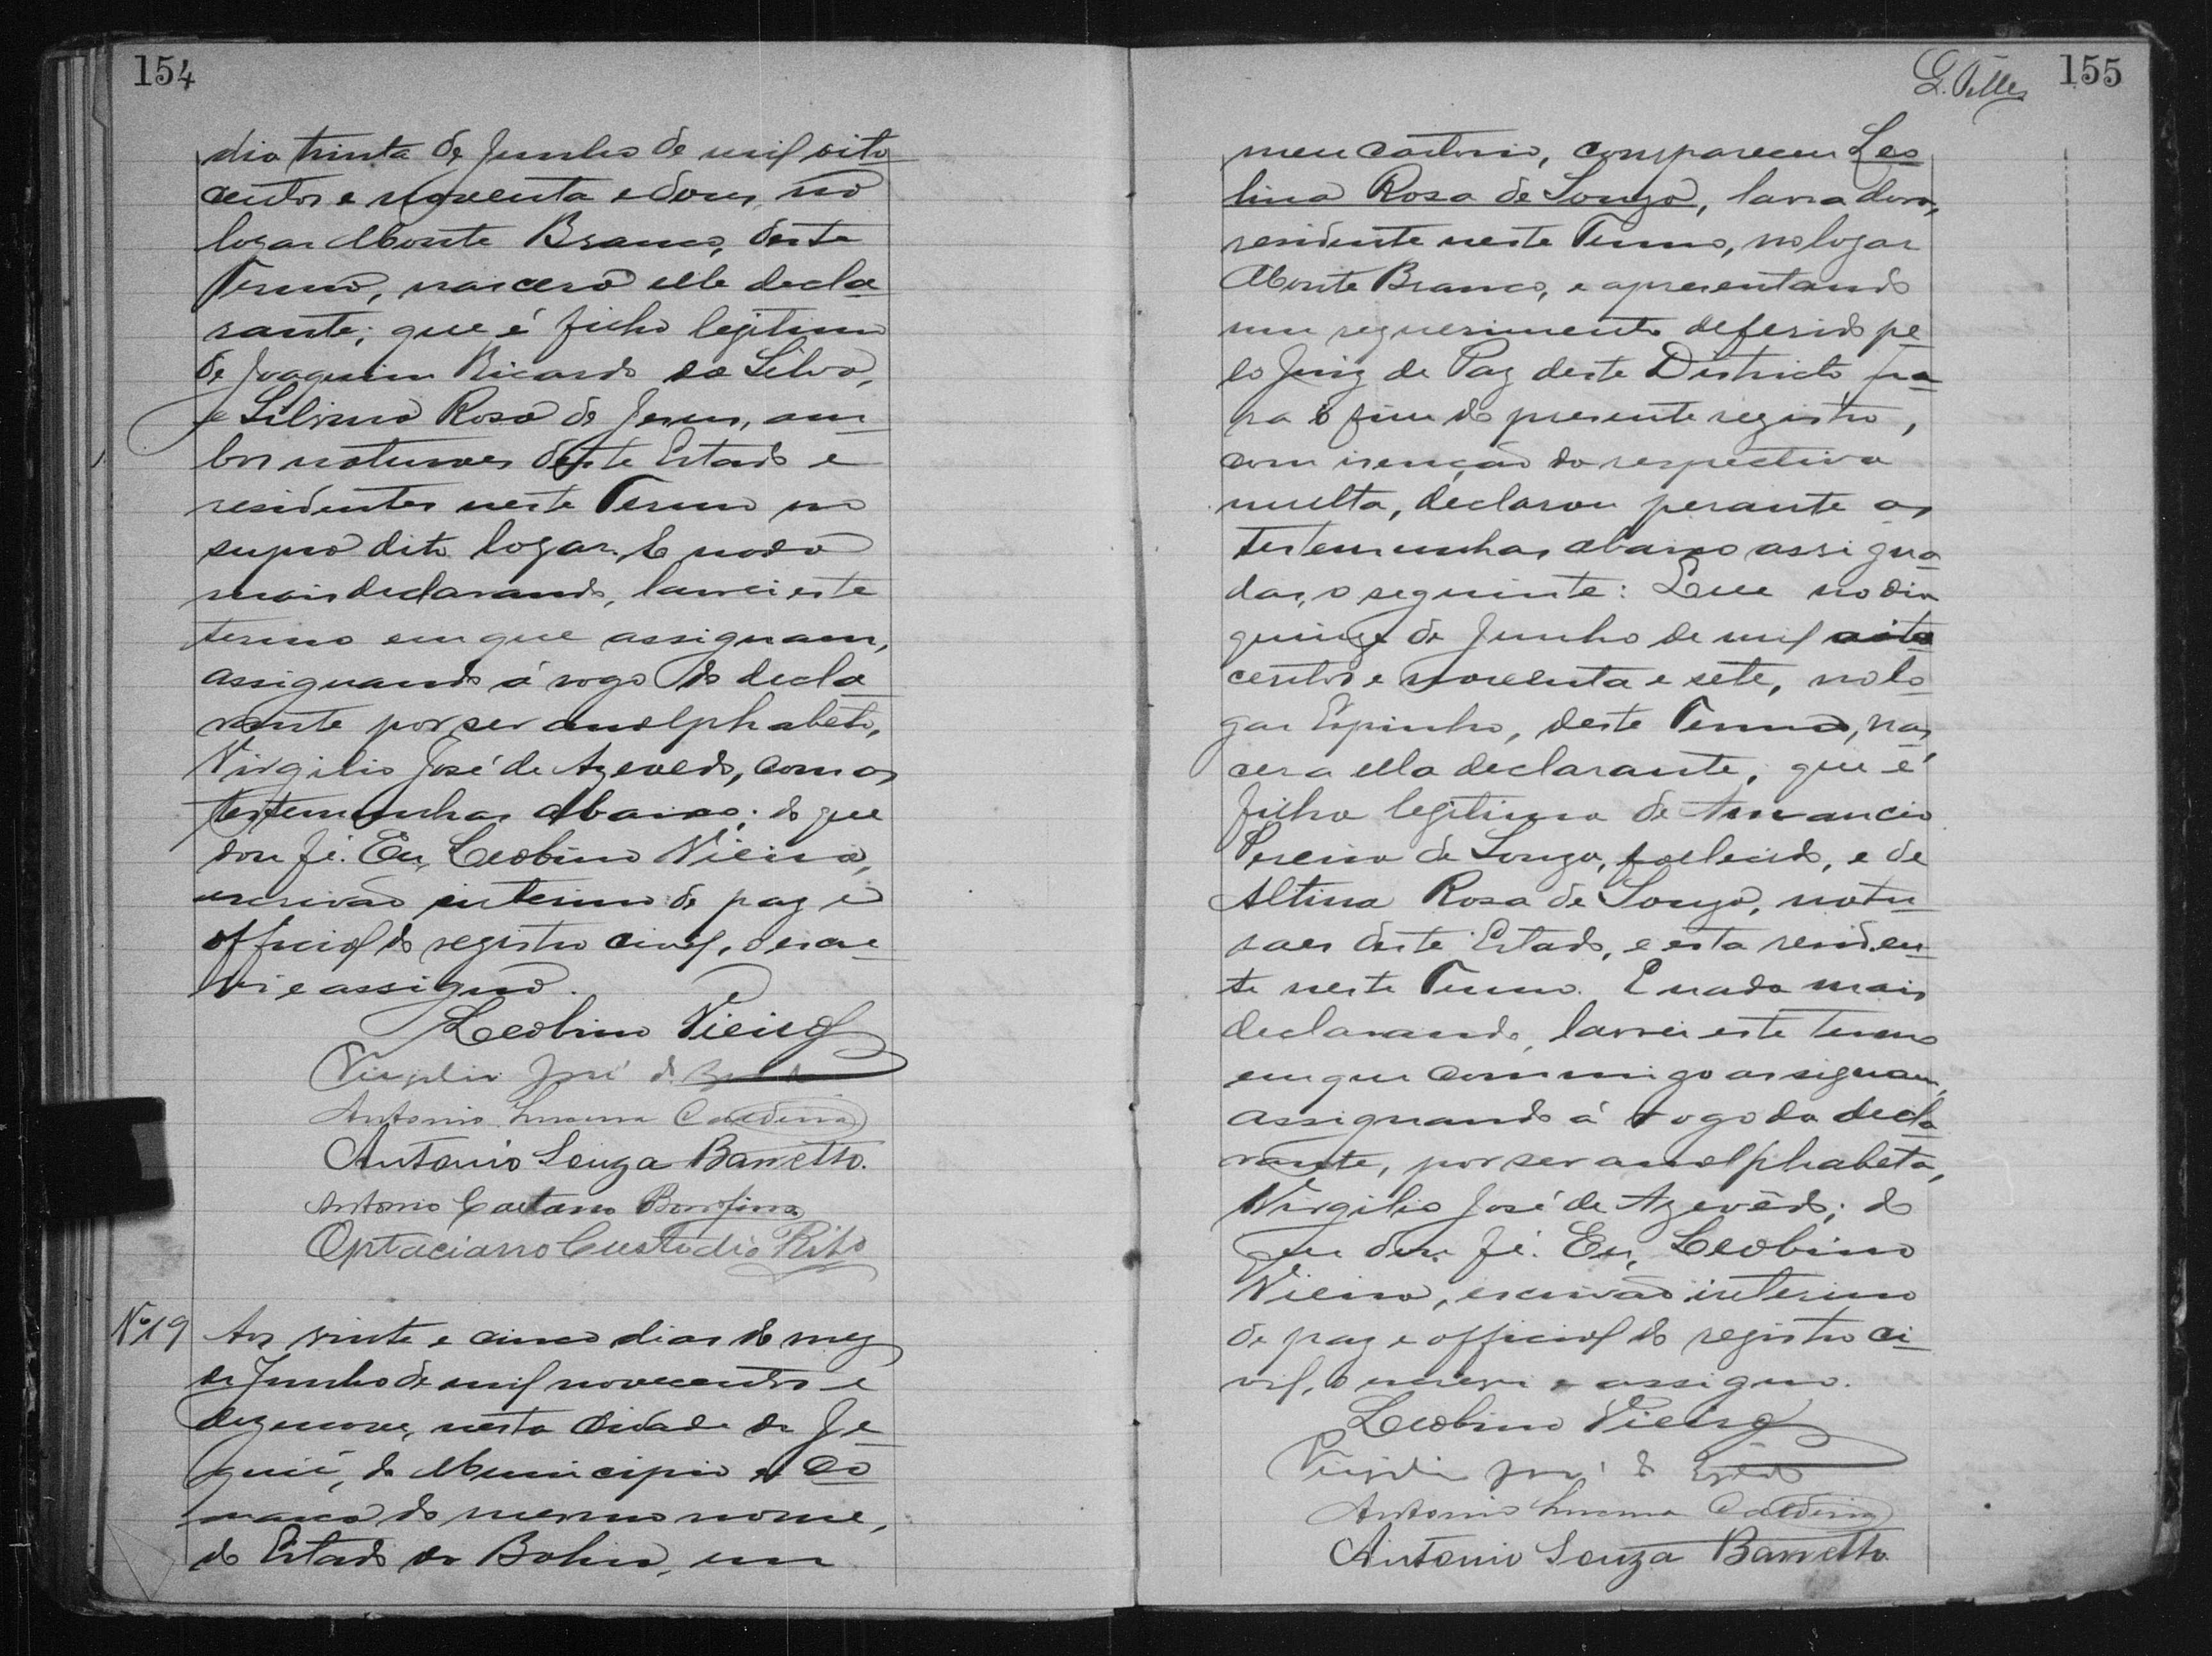 154
dia trinta de Junho de mil oito
centos e noventa e dous, no
logar Monte Branco, deste
Termo, nascera elle decla
rante; que é filho legitimo
de Joaquim Ricardo da Silva,
e Silvina Rosa de Jesus, am
bos naturaes deste Estado e
residentes neste Termo no
supra dito logar. E nada
mais declarando, lavrei este
termo em que assignam,
assignando á rogo do decla
rante por ser analphabeto,
Virgilio José de Azevedo, com as
testemunhas abaixo; do que
dou fé. Eu, Leobino Vieira,
escrivão interino de paz e
official do registro civil, o escre
vi e assigno.
Leobino Vieira
Virgilio José de
Antonio Lucena Caldeira
Antonio Souza Barretto.
Antonio Caetano Bomfim
Optaciano Custodio Rito
Nº 19 Aos vinte e cinco dias do mez
de Junho de mil novecentos e
dezenove, nesta Cidade de Je
quié, do Municipio e Co
marca do mesmo nome,
do Estado da Bahia, em
155
meu cartorio, compareceu Leo
lina Rosa de Souza, lavradora,
residente neste Termo, no logar
Monte Branco, e apresentando
um requerimento deferido pe
lo Juiz de Paz deste Districto pa
ra o fim do presente registro,
com isenção da respectiva
multa, declarou perante as
testemunhas abaixo assigna
das, o seguinte: Que no dia
quinze de Junho de mil oito
centos e noventa e sete, no lo
gar Espinho, deste Termo, nas
cera ella declarante, que é
filha legitima de Amancio
Pereira de Souza, fallecido, e de
Altina Rosa de Souza, natu
raes deste Estado, e esta residen
te neste Termo. E nada mais
declarando, lavrei este termo
em que commigo assignam,
assignando á rogo da decla
rante, por ser analphabeta,
Virgilio José de Azevêdo; do
que dou fé. Eu, Leobino
Vieira, escrivão interino
de paz e official do registro ci
vil, o escrevi e assigno.
Leobino Vieira
Virgilio José de
Antonio Lucena Caldeira
Antonio Souza Barretto